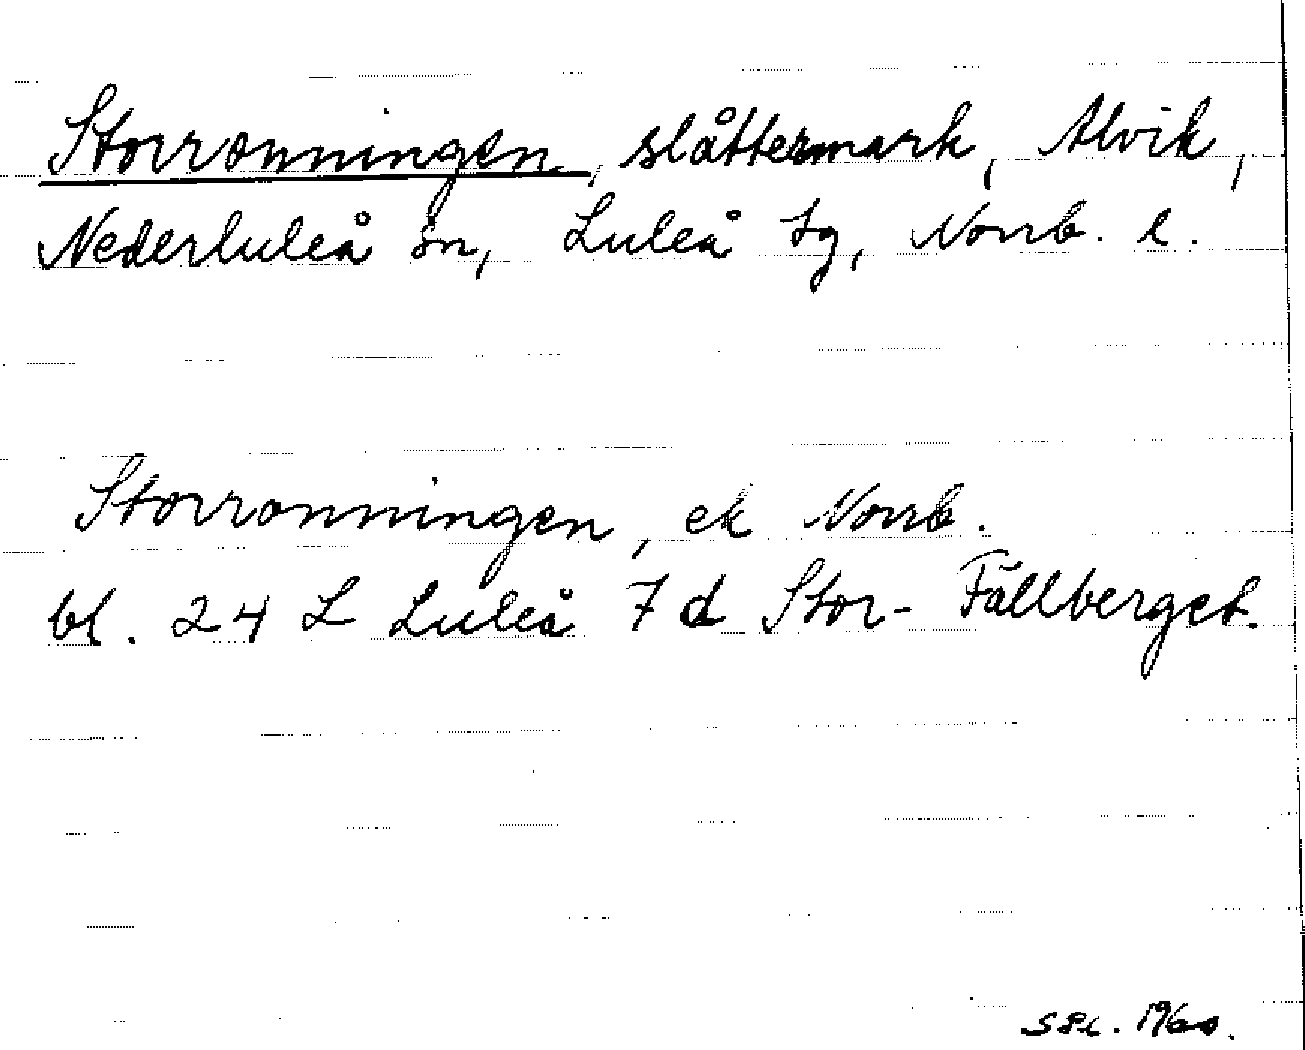 Storronningen, slåttermark, Alvik,
Nederluleå sn, Luleå tg, Norrb. l.
Storronningen, ek Norrb.
bl. 24 L Luleå 7 d Stor-Fällberget.
1960.